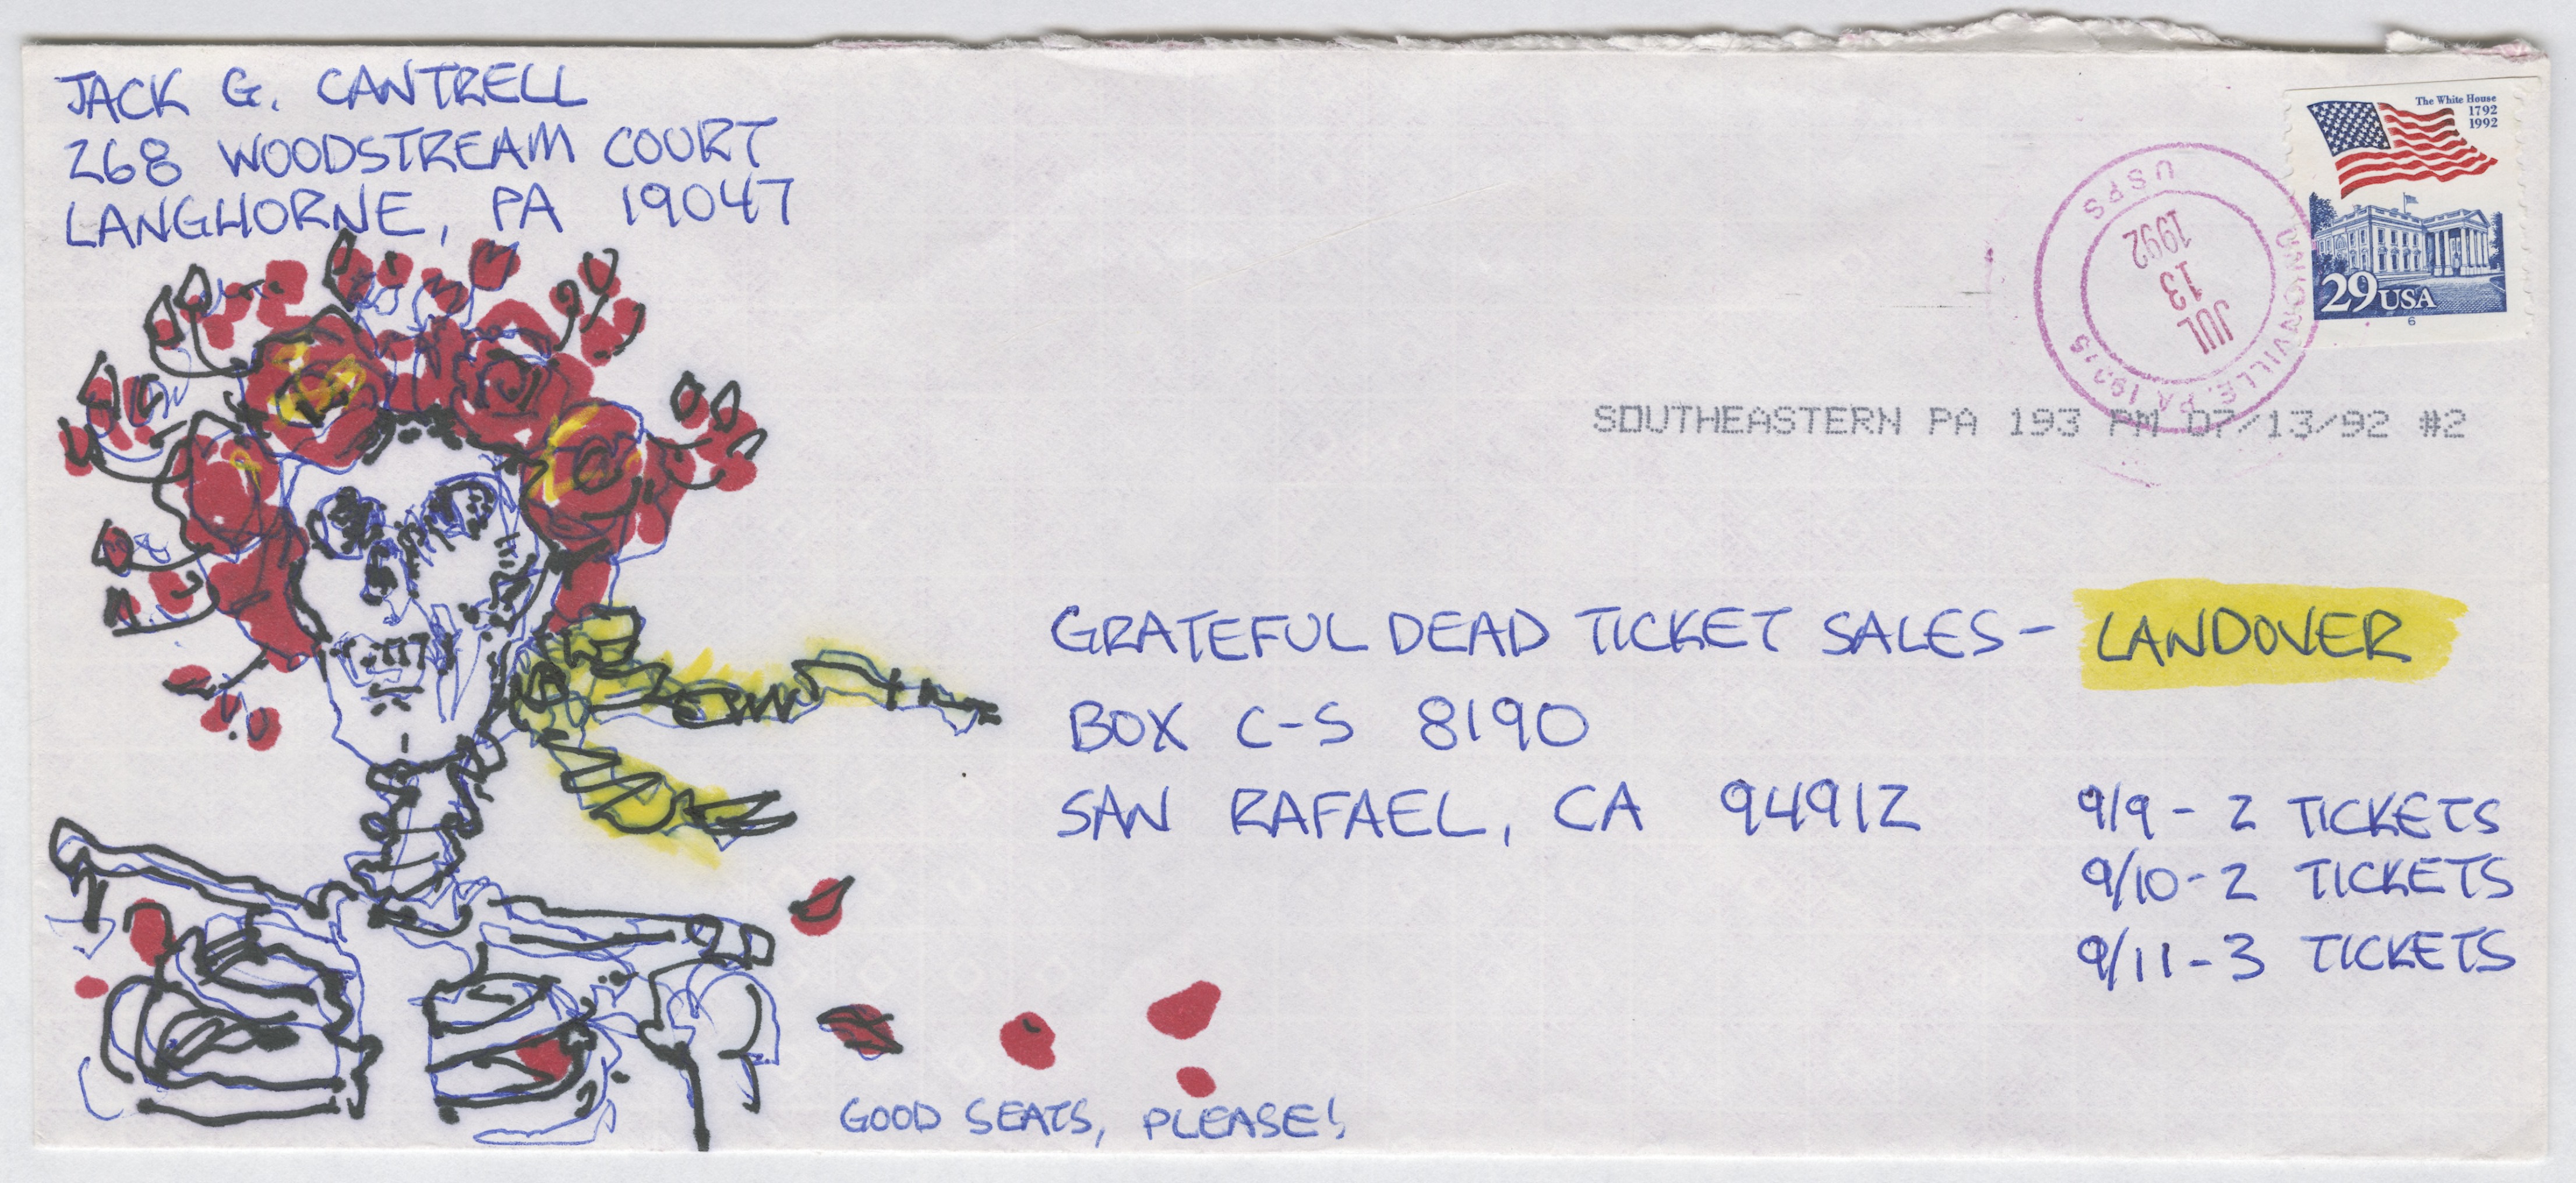 JACK G. CANTRELL
268 WOODSTREAM COURT
LANGHORNE, PA 19047
The White House
1792
1992
29 USA
6
USPS
JUL
13
1992
SOUTHEASTERN PA 193 PM 07/13/92 #2
GRATEFUL DEAD TICKET SALES- LANDOVER
BOX C-S 8190
SAN RAFAEL, CA 94912
9/9- 2 TICKETS
9/10-2 TICKETS
9/11-3 TICKETS
GOOD SEATS, PLEASE!